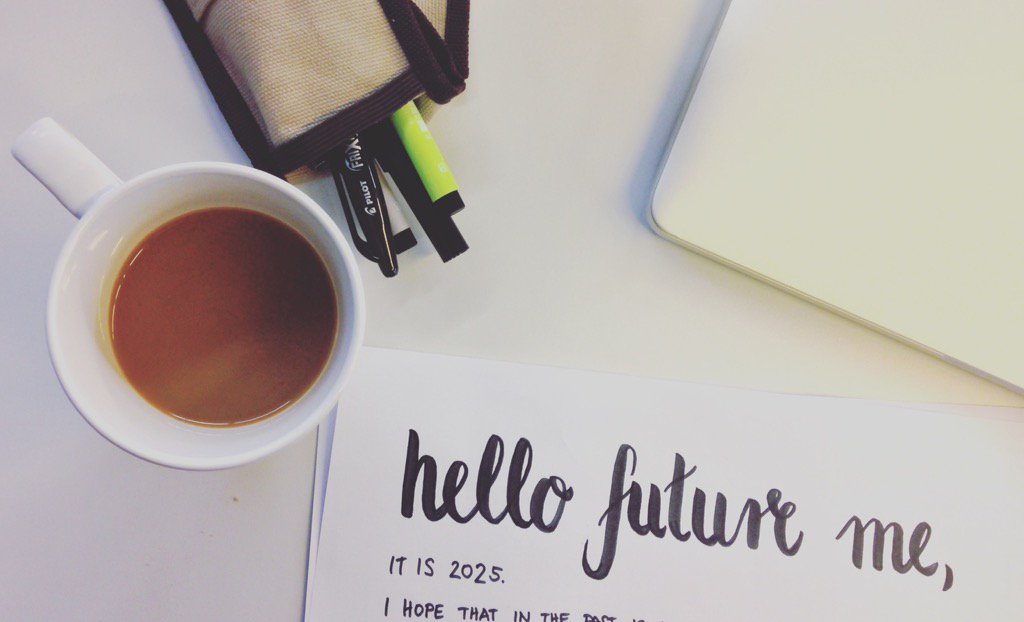 PILOT FRIX
hello future me,
IT IS 2025.
I HOPE THAT IN THE PAST